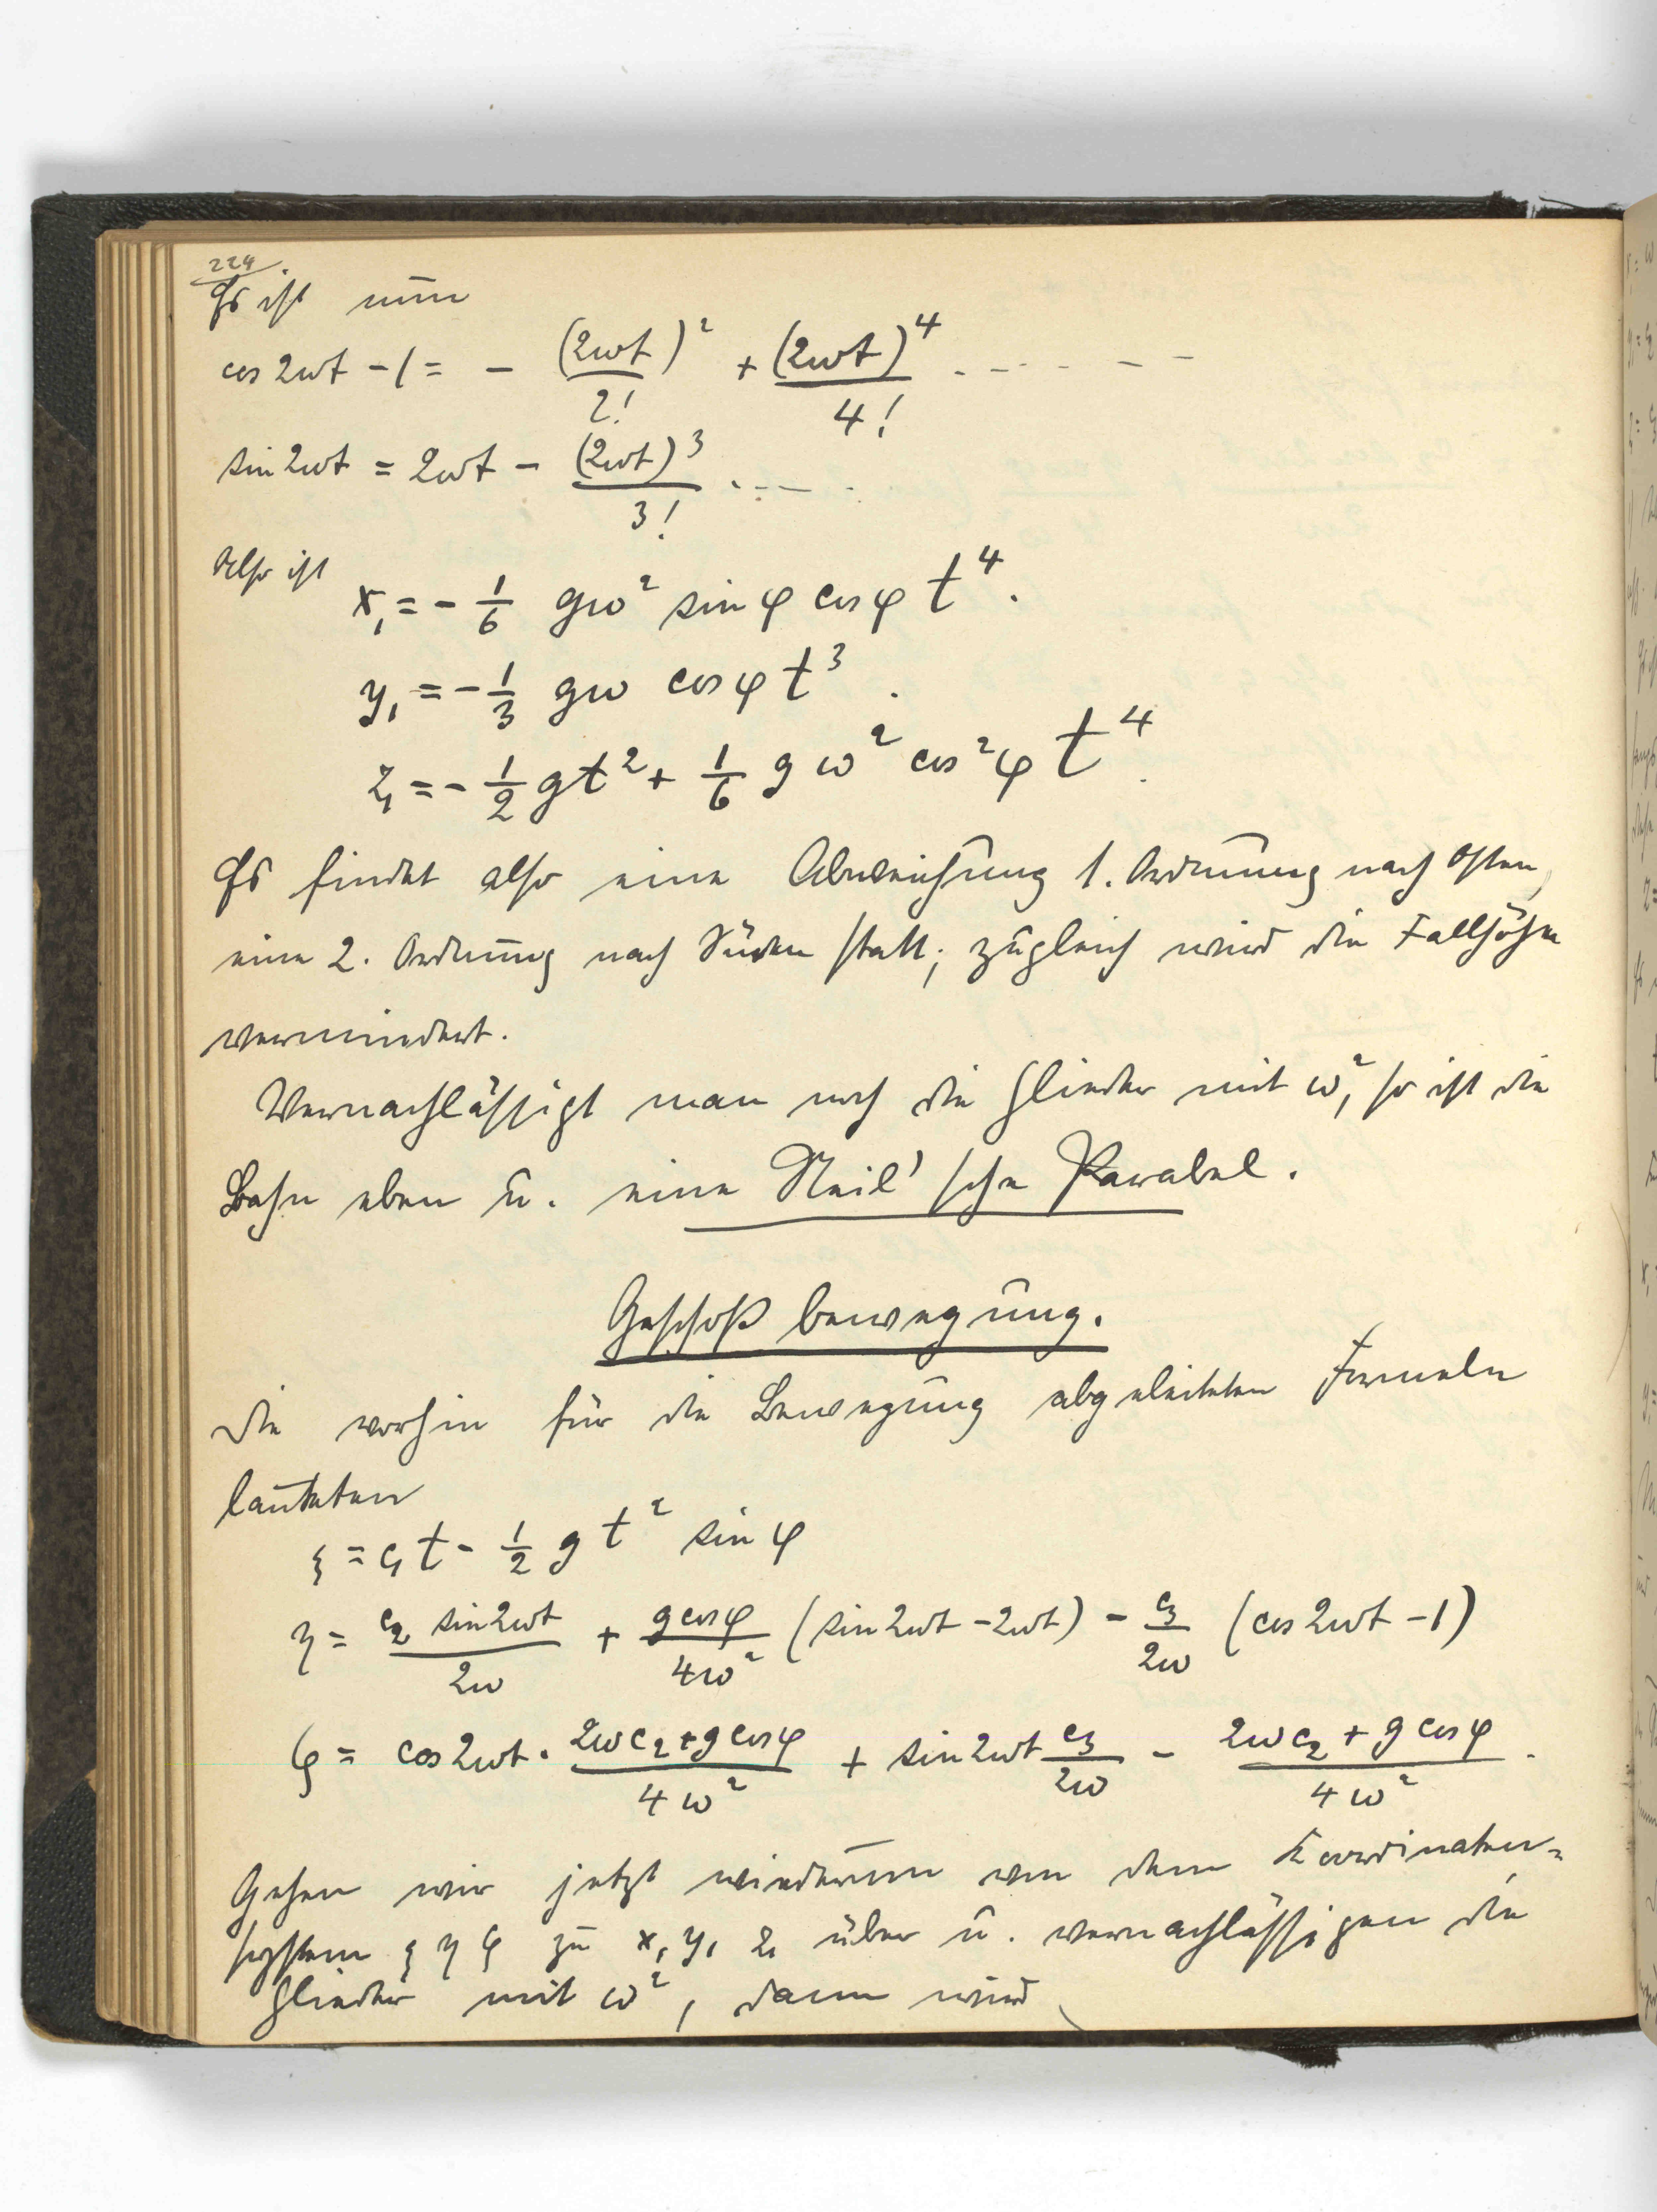 224.
Es ist nun
cos 2ωt - 1 = - (2ωt)²/2! + (2ωt)⁴/4! - - - - -
sin 2ωt = 2ωt - (2ωt)³/3! - - - -
Also ist
x₁ = - 1/6 gω² sin φ cos φ t⁴.
y₁ = - 1/3 gω cos φ t³.
z₁ = - 1/2 gt² + 1/6 g ω² cos² φ t⁴.
Es findet also eine Abweichung 1. Ordnung nach Osten,
eine 2. Ordnung nach Süden statt; zugleich wird die Fallhöhe
vermindert.
Vernachlässigt man noch die Glieder mit ω², so ist die
Bahn eben u. eine Neil'sche Parabel.
Geschoßbewegung.
Die vorhin für die Bewegung abgeleiteten Formeln
lauteten
ξ = c₁ t - 1/2 g t² sin φ
η = c₂ sin 2ωt / 2ω + g cos φ / 4ω² (sin 2ωt - 2ωt) - c₃/2ω (cos 2ωt - 1)
ζ = cos 2ωt · (2ωc₂ + g cos φ)/4ω² + sin 2ωt c₃/2ω - (2ωc₂ + g cos φ)/4ω².
Gehen wir jetzt wiederum von dem Koordinaten-
system ξ η ζ zu x₁ y₁ z₁ über u. vernachlässigen die
Glieder mit ω², dann wird